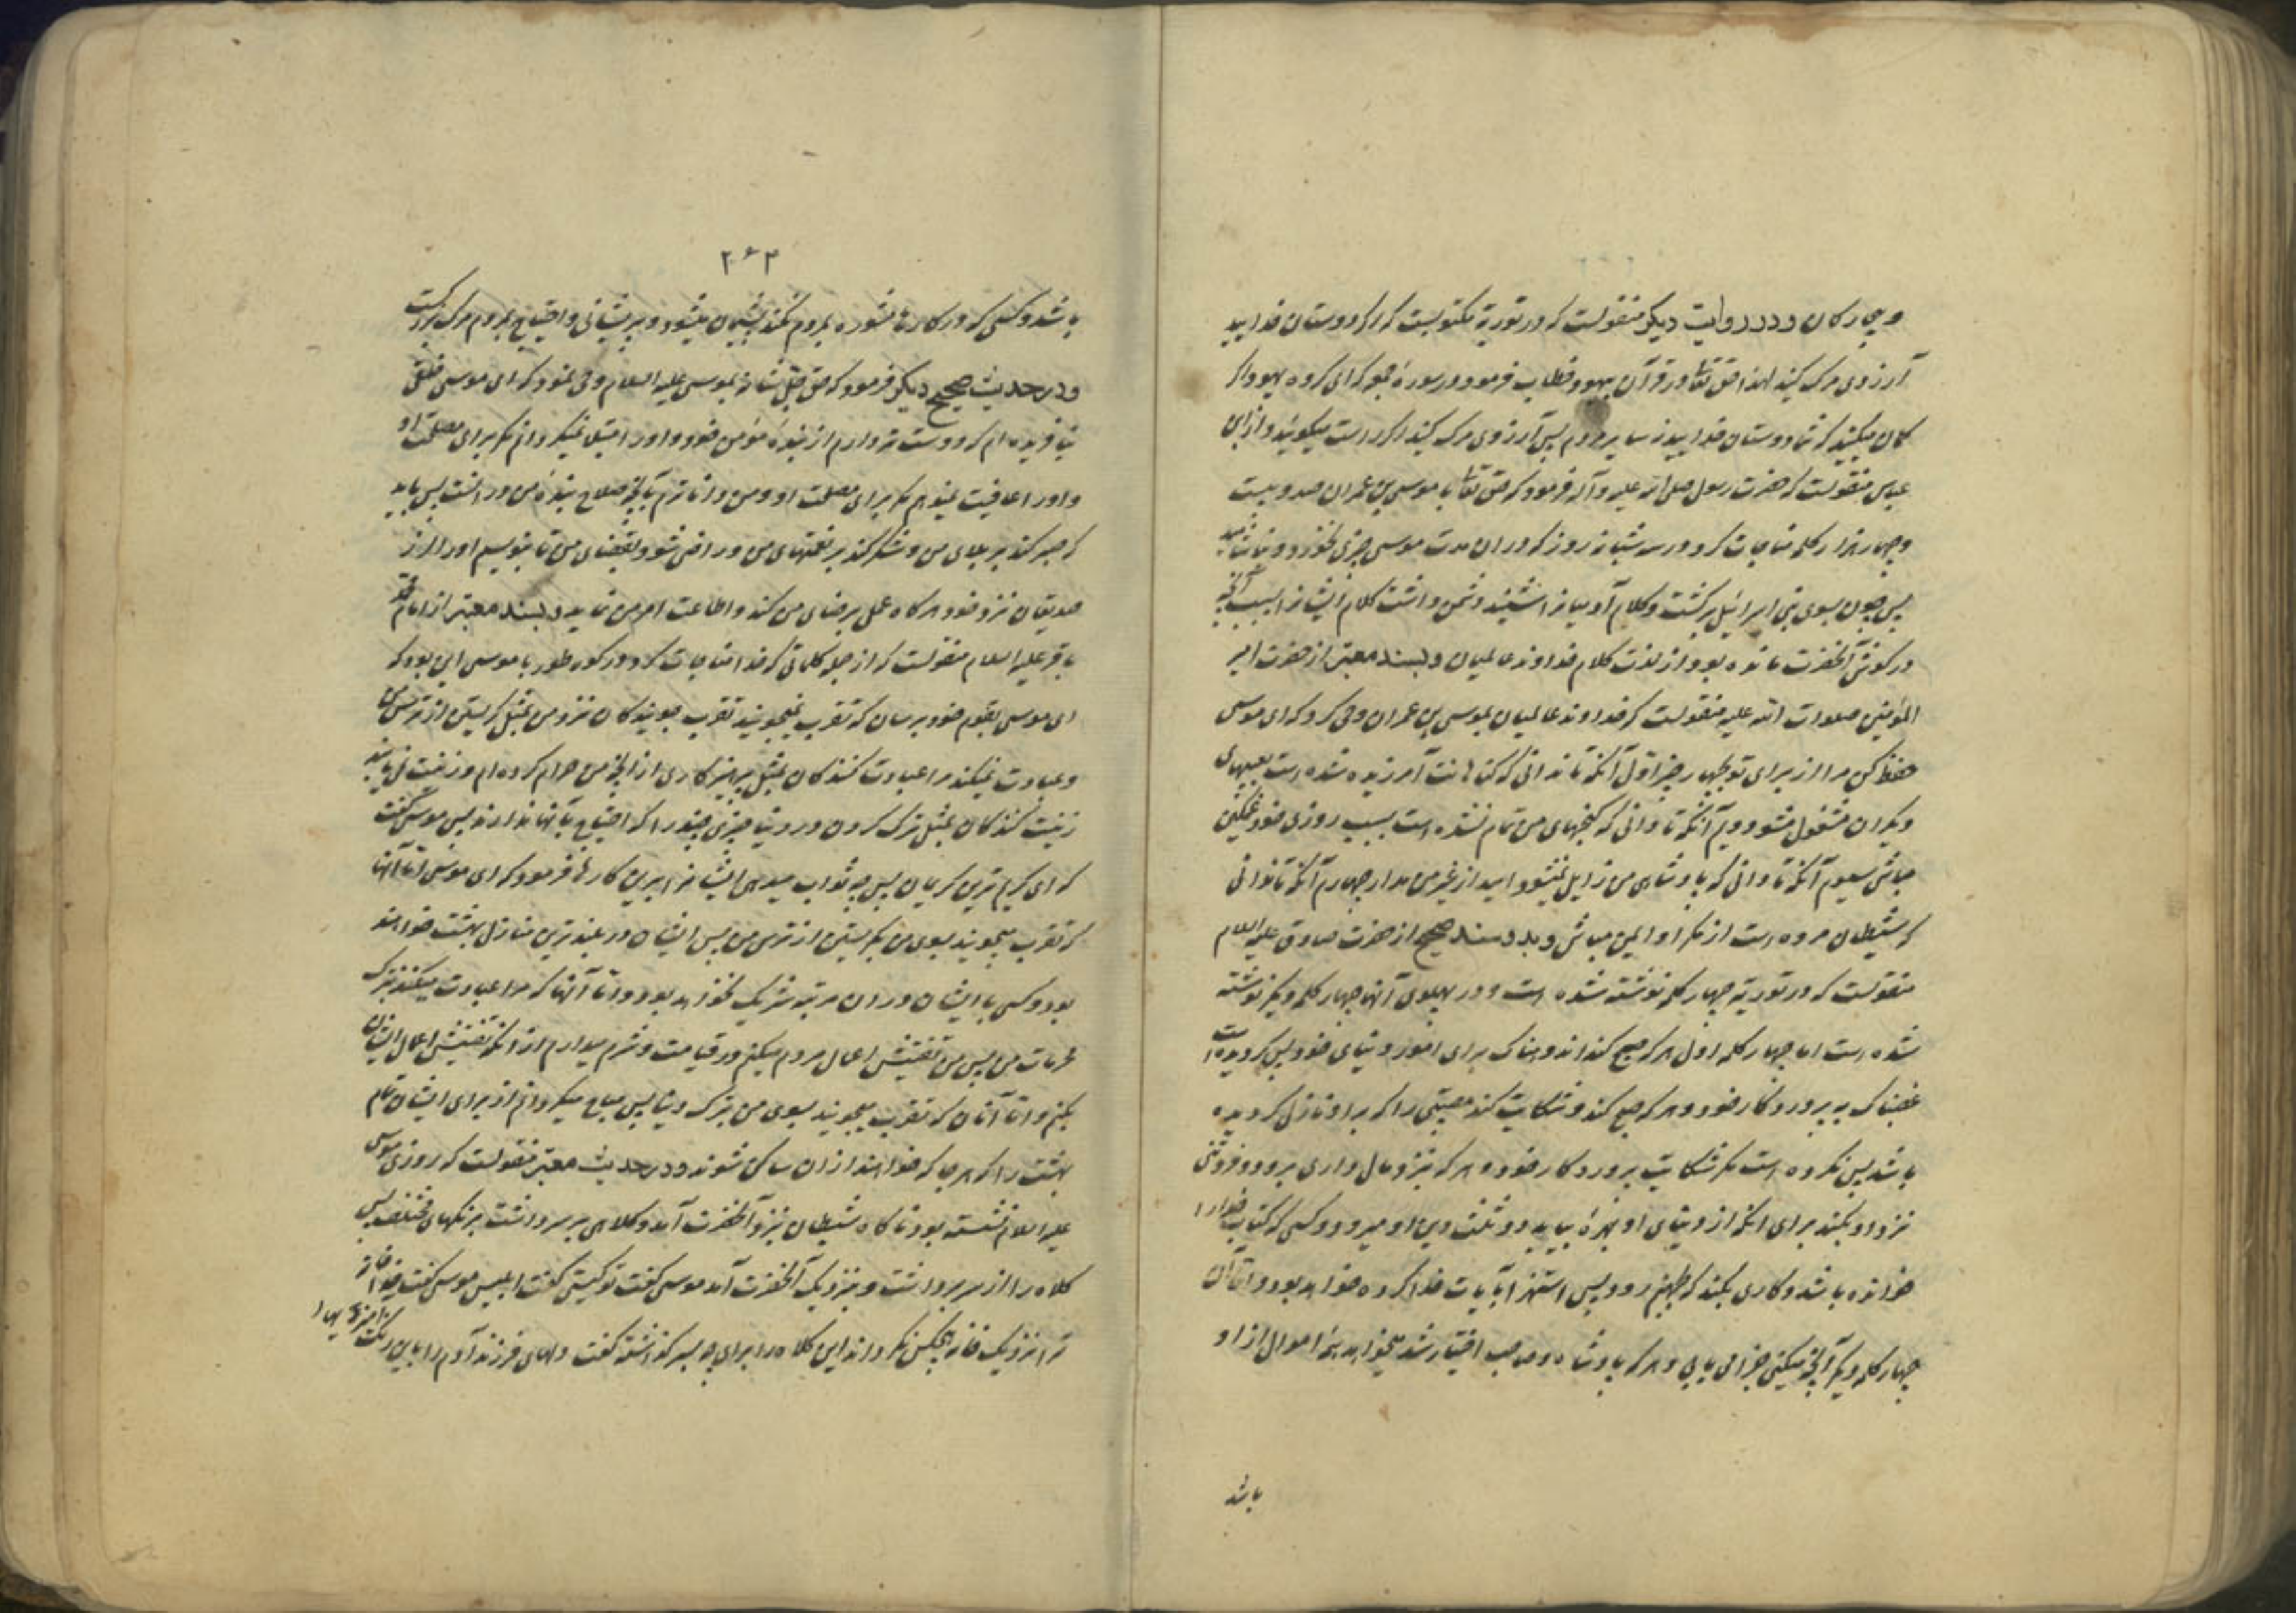 و بیچارکان و در روایت دیکر منقولست که در توریة مکتوبست که اکر دوستان خدایید
آرزوی مرک کنید لهذا حق تعالی در قرآن بیهود خطاب فرمود در سورهٔ جمعه که ای کروه یهود اکر
کمان میکنید که شما دوستان خدایید از سایر مردم پس آرزوی مرک کنید اکر راست میکوئید و از ابن
عباس منقولست که حضرت رسول صلی الله علیه وآله فرمود که حق تعالی با موسی بن عمران صد و بیست
و چهار هزار کلمه مناجات کرد در سه شبانه روز که در ان مدت موسی چیزی نخورد و نیاشامید
پس چون بسوی بنی اسرائیل برکشت و کلام آدمیان را شنید دشمن داشت کلام ایشانرا بسبب آنچه
در کوش آنحضرت مانده بود از لذت کلام خداوند عالمیان و بسند معتبر از حضرت امیر
المؤمنین صلوات الله علیه منقولست که خداوند عالمیان بموسی بن عمران وحی کرد که ای موسی
حفظ کن مرا از برای تو بچهار چیز اول آنکه تا ندانی که کناهانت آمرزیده شده است بعیبهای
دیکران مشغول مشو دویم آنکه تا ندانی که کنجهای من تمام نشده است بسبب روزی خود غمکین
مباش سیوم آنکه تا ندانی که پادشاهی من زایل نمیشود امید از غیر من مدار چهارم آنکه تا ندانی
که شیطان مرده است از مکر او ایمن مباش و بدو سند صحیح از حضرت صادق علیه السلام
منقولست که در توریة چهار کلمه نوشته شده است و در پهلوی آنها چهار کلمه دیکر نوشته
شده است اما چهار کلمه اول هر که صبح کند اندوهناک برای امور دنیای خود پس کردیده است
غضبناک به پروردکار خود و هر که صبح کند و شکایت کند مصیبتی را که بر او نازل کردیده
باشد پس نکرده است مکر شکایت پروردکار خود و هر که بنزد مالداری برود و فروتنی
نزد او بکند برای انکه از دنیای او بهرهٔ بیابد دو ثلث دین او میرود و کسی که کتاب خدا را
خوانده باشد و کاری بکند که بجهنم رود پس استهزا بآیات خدا کرده خواهد بود و اما آن
چهار کلمه دیکر آنچه میکنی جزا می یابی و هر که پادشاه و صاحب اختیار شد میخواهد همه اموال از او
باشد
۲۶۴
باشد و کسی که در کارها مشوره بمردم نکند پشیمان میشود و پریشانی و احتیاج بمردم مرک بزرکست
و در حدیث صحیح دیکر فرمود که حق جل شانه بموسی علیه السلام وحی نمود که ای موسی خلقی
نیافریده ام که دوست تر دارم از بندهٔ مؤمن خود و او را مبتلا نمیکردانم مکر برای مصلحت او
و او را عافیت نمیدهم مکر برای مصلحت او و من داناترم بآنچه صلاح بندهٔ من در انست پس باید
که صبر کند بر بلای من و شکر کند بر نعمتهای من و راضی شود بقضای من تا بنویسم او را از
صدیقان نزد خود هر کاه عمل برضای من کند و اطاعت امر من نماید و بسند معتبر از امام محمد
باقر علیه السلام منقولست که از جمله کلماتی که خدا مناجات کرد در کوه طور با موسی این بود که
ای موسی بقوم خود برسان که تقرب نمیجویند تقرب جویندکان نزد من بمثل کریستن از ترس من
و عبادت نمیکنند مرا عبادت کنندکان بمثل پرهیزکاری از آنچه من حرام کرده ام و زینت نمی یابند
زینت کنندکان بمثل ترک کردن در دنیا چیزی چند را که احتیاج بآنها ندارند پس موسی کفت
که ای کریم ترین کریمان پس چه ثواب میدهی ایشانرا براین کارها فرمود که ای موسی اما آنها
که تقرب میجویند بسوی من بکریستن از ترس من پس ایشان در بلندترین منازل بهشت خواهند
بود و کسی با ایشان در ان مرتبه شریک نخواهد بود و اما آنها که مرا عبادت میکنند بترک
محرمات من پس من تفتیش اعمال مردم میکنم در قیامت و شرم میدارم از انکه تفتیش اعمال ایشان
بکنم و اما آنان که تقرب میجویند بسوی من بترک دنیا پس مباح میکردانم از برای ایشان تمام
بهشت را که هر جا که خواهند از ان ساکن شوند و در حدیث معتبر منقولست که روزی موسی
علیه السلام نشسته بود ناکاه شیطان بنزد آنحضرت آمد و کلاهی بر سر داشت برنکهای مختلف پس
کلاه را از سر برداشت و بنزدیک آنحضرت آمد موسی کفت تو کیستی کفت ابلیس موسی کفت خدا خانه
ترا نزدیک خانه هیچکس نکرداند این کلاه را برای چه بسر کذاشته کفت دلهای فرزند آدم را باین رنکها